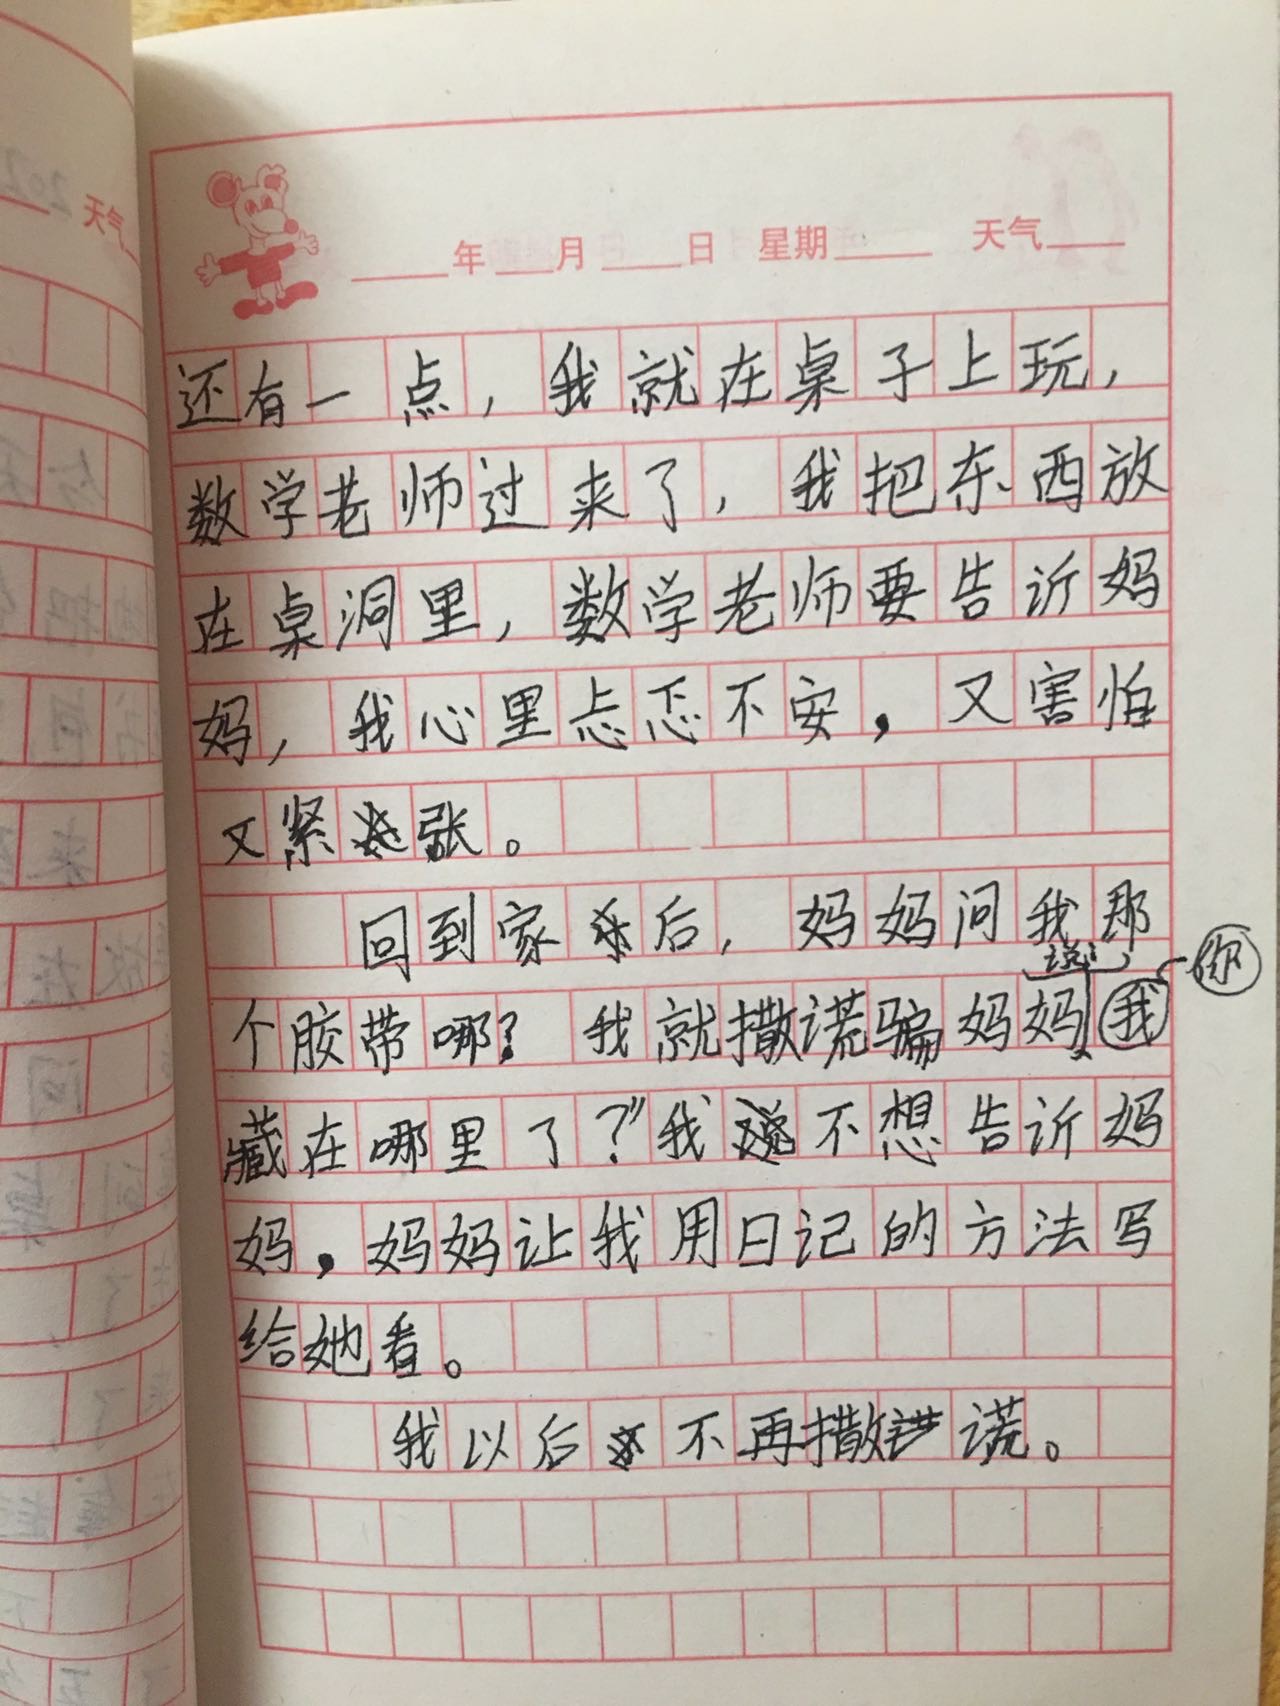 年 月 日 星期 天气
还有一点，我就在桌子上玩，
数学老师过来了，我把东西放
在桌洞里，数学老师要告诉妈
妈，我心里忐忑不安，又害怕
又紧张。
回到家后，妈妈问我那
个胶带哪？我就撒谎骗妈妈说：“你
藏在哪里了？”我不想告诉妈
妈，妈妈让我用日记的方法写
给她看。
我以后不再撒谎。
天气